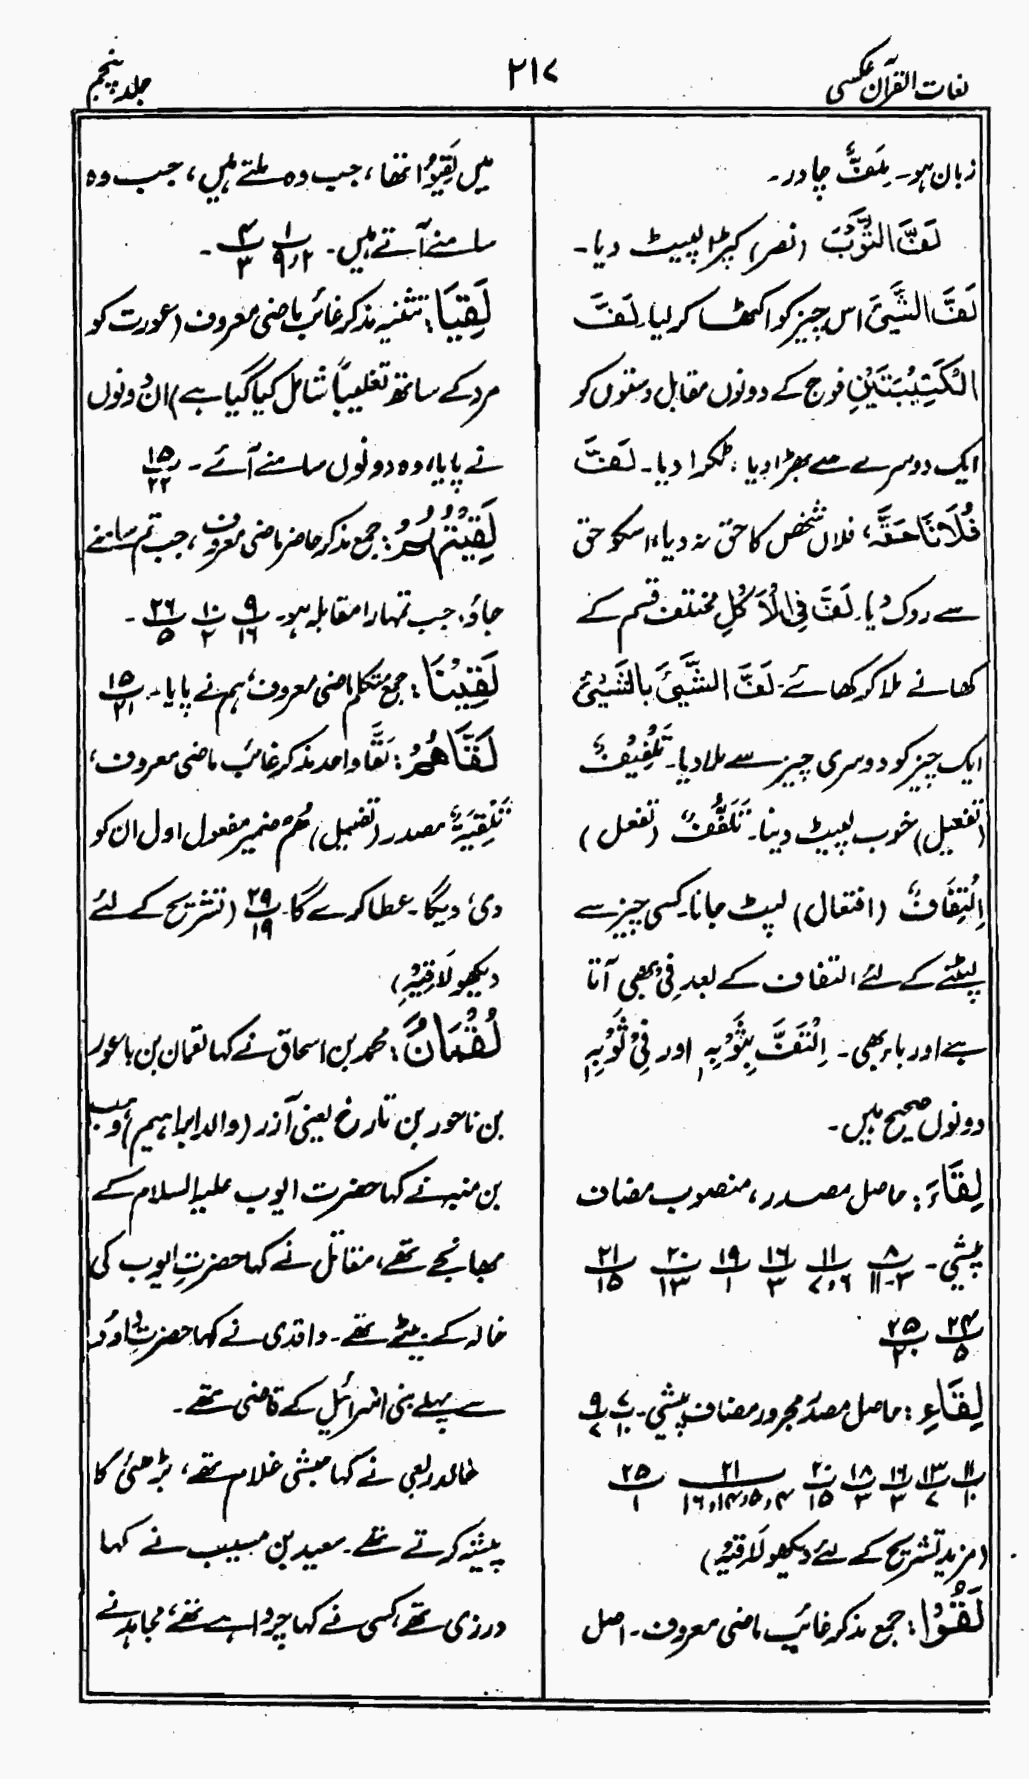 لغات القرآن عکسی
۲۱۷
جلد پنجم
زبان ہو۔ مِلَفٌّ چادر۔
لَفَّ الثَّوْبَ (نصر) کپڑا لپیٹ دیا۔
لَفَّ الشَّیْءَ اس چیز کو اکٹھا کر لیا۔ لَفَّ
الْکَتِیْبَتَیْنِ فوج کے دونوں مقابل دستوں کو
ایک دوسرے سے بھڑا دیا، ٹکرا دیا۔ لَفَّ
فُلَانًا حَقَّہٗ، فلاں شخص کا حق نہ دیا، اسکو حق
سے روک دیا۔ لَفَّ فِی الْاَکْلِ مختلف قسم کے
کھانے ملا کر کھائے۔ لَفَّ الشَّیْءَ بِالشَّیْءِ
ایک چیز کو دوسری چیز سے ملا دیا۔ تَلْفِیْفٌ
(تفعیل) خوب لپیٹ دینا۔ تَلَفُّفٌ (تفعل)
اِلْتِفَافٌ (افتعال) لپٹ جانا۔ کسی چیز سے
لپٹنے کے لئے التفاف کے بعد فِی بھی آتا
ہے اور باء بھی۔ اِلْتَفَّ بِثَوْبِہٖ اور فِیْ ثَوْبِہٖ
دونوں صحیح ہیں۔
لِقَاءَ: حاصل مصدر، منصوب مضاف
پیشی۔ ۸/۳-۱۱ ۱۱/۶،۷ ۱۶/۳ ۱۹/۱ ۲۰/۱۳ ۲۱/۱۵
۲۴/۵ ۲۵/۲۰
لِقَاءِ: حاصل مصدر مجرور مضاف پیشی۔ ۷/۱۰ ۹/۷
۱۱/۱۰ ۱۳/۷ ۱۶/۳ ۱۸/۳ ۲۰/۱۵ ۲۱/۴،۵،۱۴،۱۶ ۲۵/۱
(مزید تشریح کے لئے دیکھو لَاقِیْہِ)
لَقُوْا: جمع مذکر غائب ماضی معروف۔ اصل
میں لَقِیُوْا تھا، جب وہ ملتے ہیں، جب وہ
سامنے آتے ہیں۔ ۱/۲،۹ ۴/۳۔
لَقِیَا: تثنیہ مذکر غائب ماضی معروف (عورت کو
مرد کے ساتھ تغلیباً شامل کیا گیا ہے) ان دونوں
نے پایا، وہ دونوں سامنے آئے۔ ۱۵/۲۲
لَقِیْتُمْ: جمع مذکر حاضر ماضی معروف، جب تم سامنے
جاؤ، جب تمہارا مقابلہ ہو۔ ۹/۱۶ ۱۰/۲ ۲۶/۵۔
لَقِیْنَا: جمع متکلم ماضی معروف، ہم نے پایا۔ ۱۵/۲۱
لَقّٰاهُمْ: لَقّٰا واحد مذکر غائب ماضی معروف،
تَلْقِیَۃٌ مصدر (تفعیل) ھُمْ ضمیر مفعول اول ان کو
دی، دیگا۔ عطا کرے گا۔ ۲۹/۱۹ (تشریح کے لئے
دیکھو لَاقِیْہِ)
لُقْمَانُ: محمد بن اسحاق نے کہا لقمان بن باعور
بن ناحور بن تارخ یعنی آزر (والد ابراہیم) وہب
بن منبہ نے کہا حضرت ایوب علیہ السلام کے
بھانجے تھے، مقاتل نے کہا حضرت ایوب کی
خالہ کے بیٹے تھے۔ واقدی نے کہا حضرت داؤد
سے پہلے بنی اسرائیل کے قاضی تھے۔
خالد ربعی نے کہا حبشی غلام تھے، بڑھئی کا
پیشہ کرتے تھے۔ سعید بن مسیب نے کہا
درزی تھے، کسی نے کہا چرواہے تھے، مجاہد نے